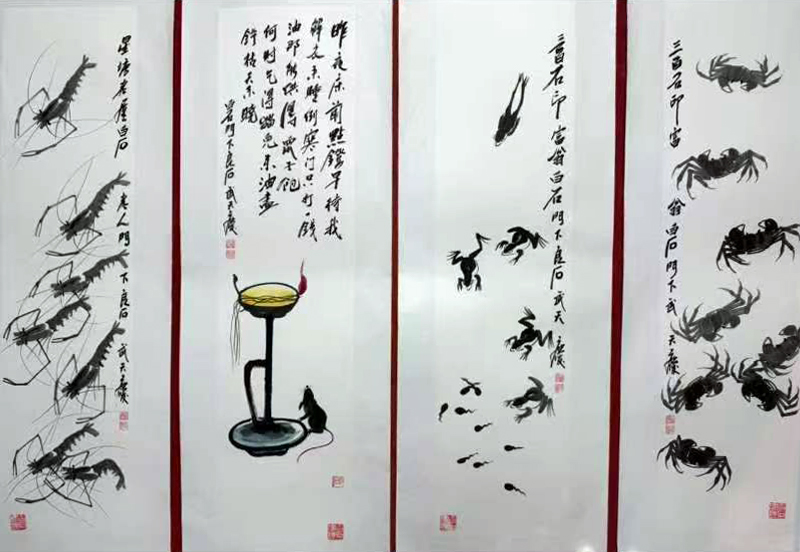 星塘老屋白石老人門下良石武天慶
昨夜床前點鐙早待我
解衣来睡倒寒門只打一錢
油那能供得鼠子飽
何时乞得猫儿来油盡
鐙枯天不曉
白石門下良石武天慶
三百石印富翁白石門下良石武天慶
三百石印富翁白石門下武天慶